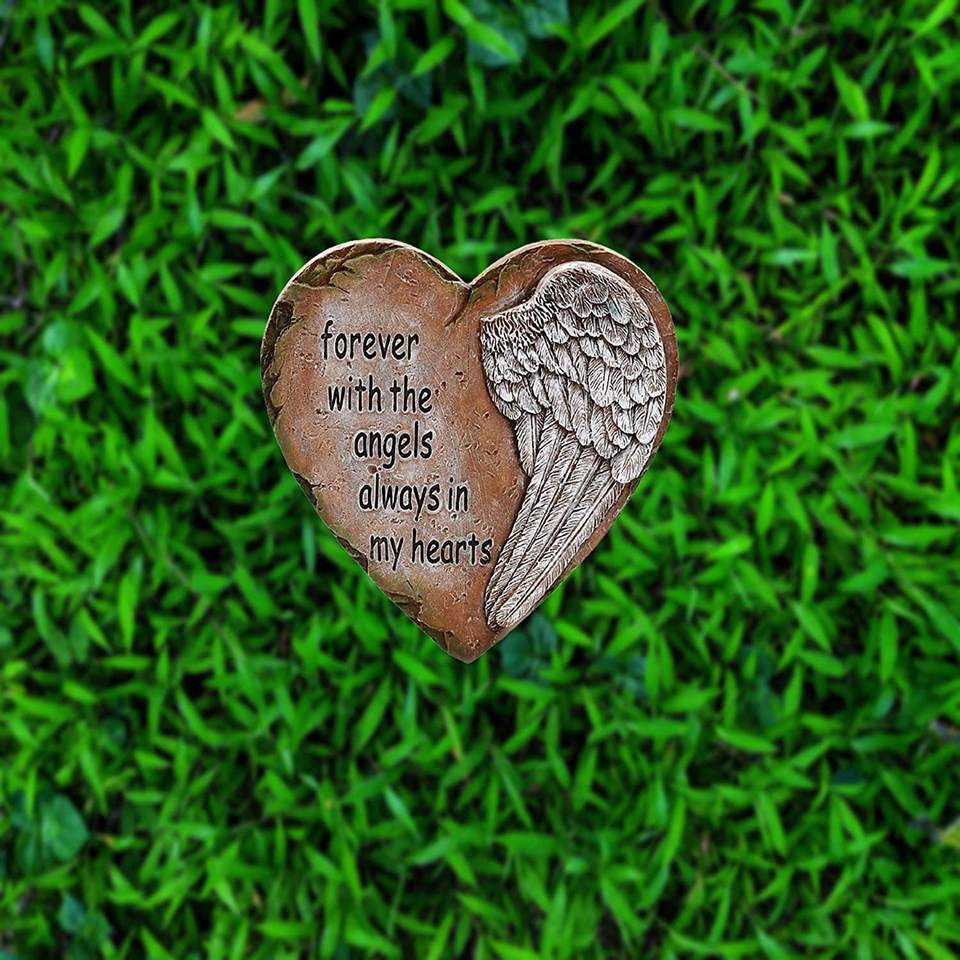 forever
with the
angels
always in
my hearts